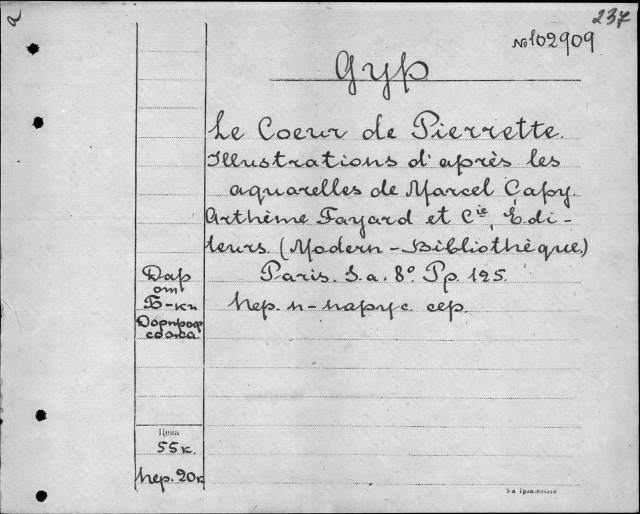 237
№102909
Gyp
Le Coeur de Pierrette.
Illustrations d'après les
aquarelles de Marcel Capy.
Arthème Fayard et Cie, Édi-
teurs. (Modern-Bibliothèque)
Paris. S.a. 8° Pp. 125.
Пер. п-парус. сер.
Дар
от
Б-ки
Дорпроф
сожа
Цена
55к.
Пер. 20к